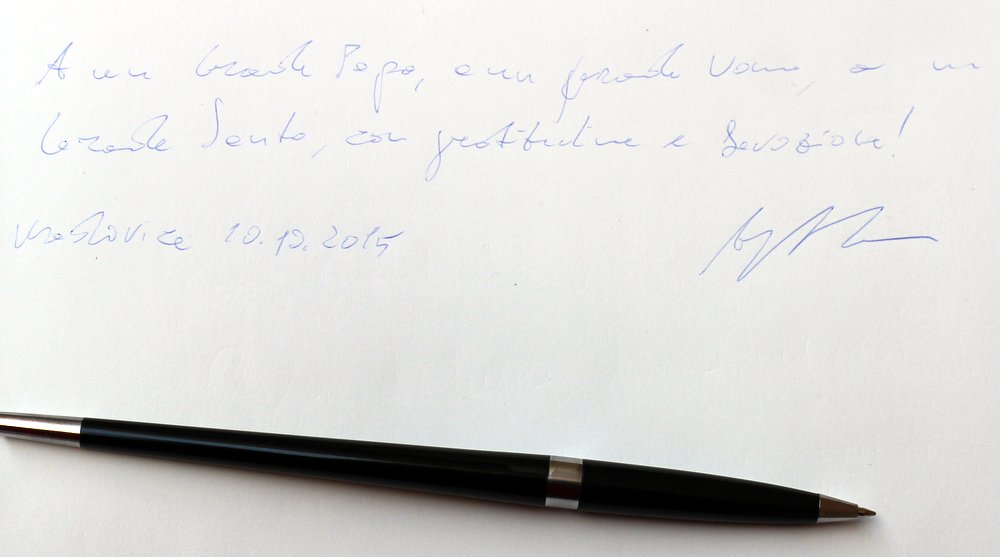 A un Grande Papa, a un grande Uomo, a un
Grande Santo, con gratitudine e devozione!
10.10.2015